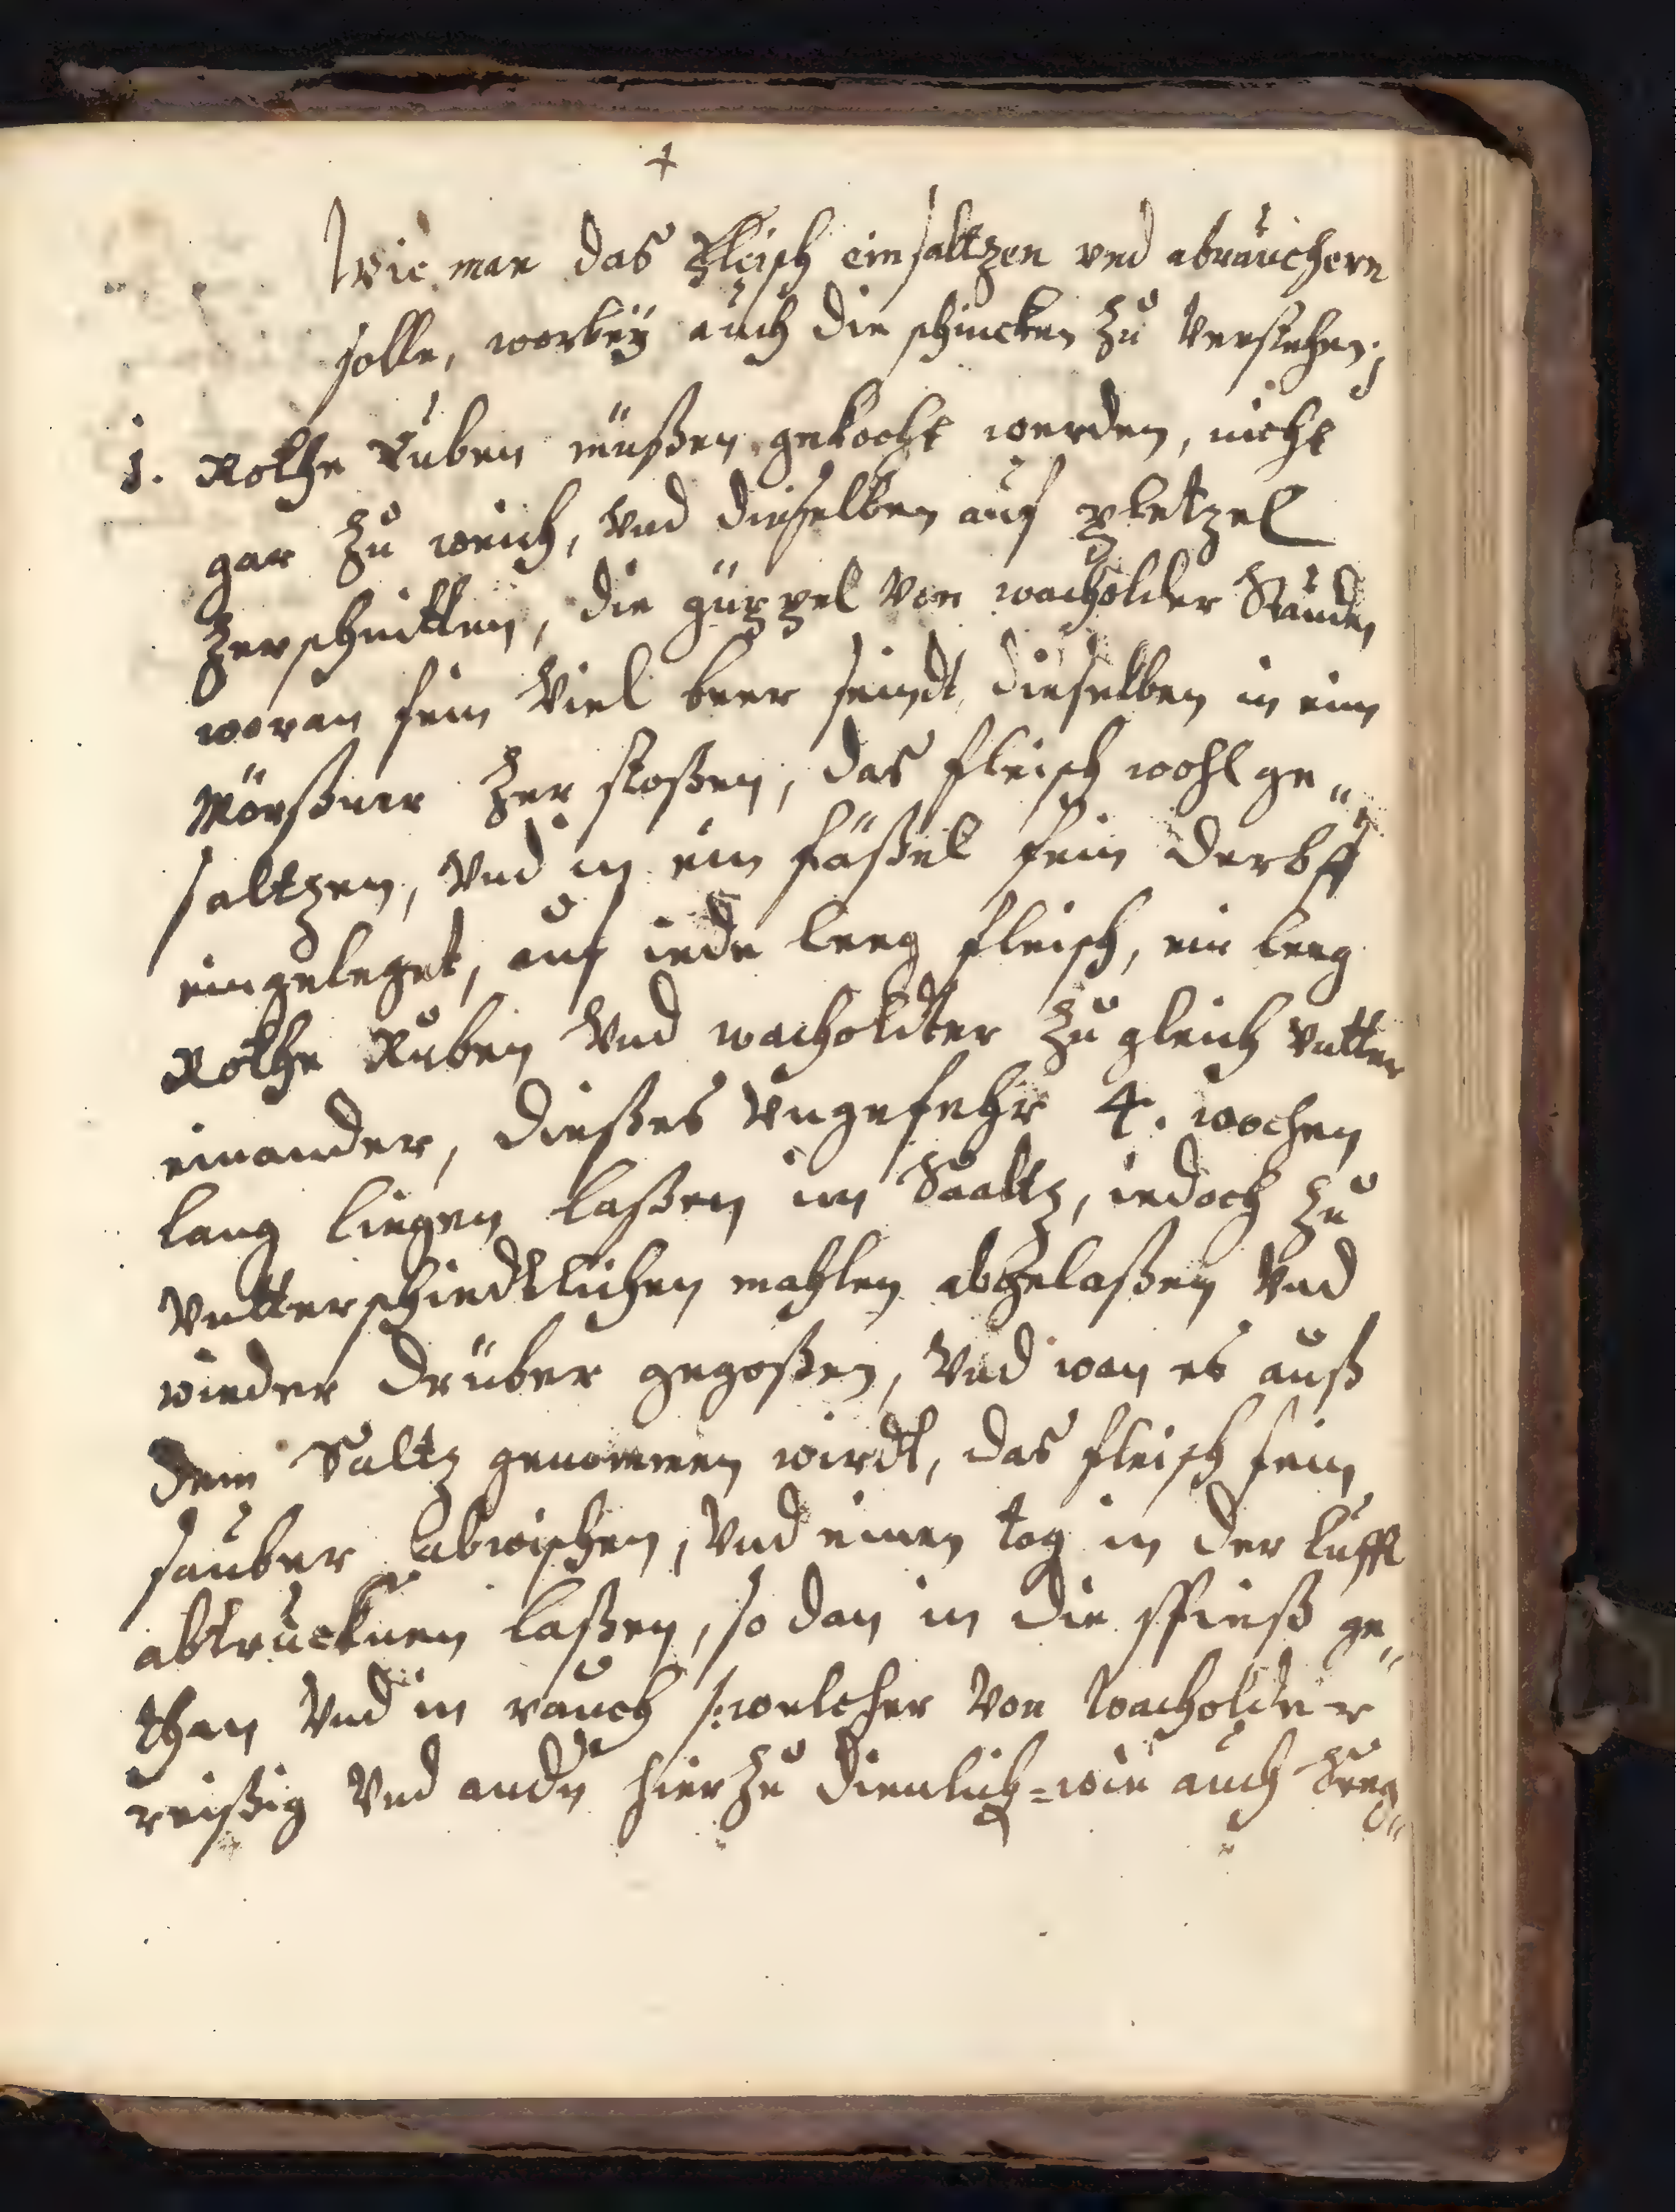 +
Wie man das Fleisch einsaltzen vnd abräuchern
solle, worbeÿ auch die schincken zu verstehen;
1. Rothe Ruben müßen gekocht werden, nicht
gar zu weich, vnd dieselben auf pletzel
zerschnitten, die güppel von wacholder Stauden
woran fein viel beer seindt, dieselben in eim
Mörßner zer stoßen, das fleisch wohl ge„
saltzen, vnd in ein fäßel fein derb
eingeleget, auf iede leeg fleisch, ein leeg
Rothe Ruben vnd wacholdter zu gleich vntter
einander, dießes vngefehr 4. wochen
lang liegen laßen im Saaltz, iedoch zu
vntterschiedtlichen mahlen abgelaßen vnd
wieder drüber gegoßen, vnd wan es auß
dem Saltz genommen wirdt, das fleisch fein
sauber abwischen, vnd einen tag in der lufft
abtrucknen laßen, so dan in die spieß ge„
than vnd in rauch /: welcher von wacholder
reißig vnd andn hierzu dienlich=wie auch Seeg„